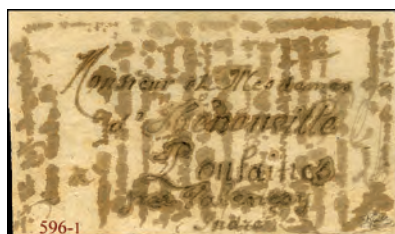 Monsieur et Mesdames
d'Hédouville
Poulaines
près Valençay
Indre
596-1